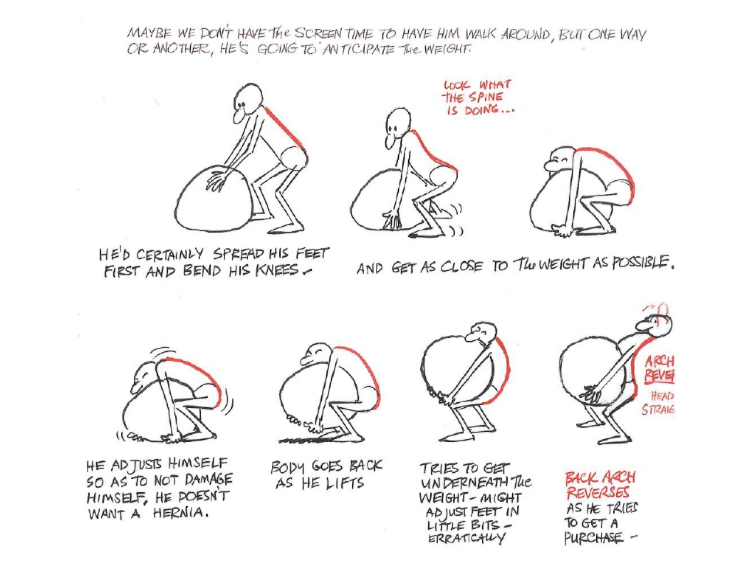 MAYBE WE DON'T HAVE The SCREEN TIME TO HAVE HIM WALK AROUND, BUT ONE WAY
OR ANOTHER, HE'S GOING TO ANTICIPATE The WEIGHT.
LOOK WHAT
THE SPINE
IS DOING...
HE'D CERTAINLY SPREAD HIS FEET
FIRST AND BEND HIS KNEES –
AND GET AS CLOSE TO The WEIGHT AS POSSIBLE.
ARCH
REVE
HEAD
STRAIG
HE ADJUSTS HIMSELF
SO AS TO NOT DAMAGE
HIMSELF, HE DOESN'T
WANT A HERNIA.
BODY GOES BACK
AS HE LIFTS
TRIES TO GET
UNDERNEATH The
WEIGHT – MIGHT
ADJUST FEET IN
LITTLE BITS –
ERRATICALLY
BACK ARCH
REVERSES
AS HE TRIES
TO GET A
PURCHASE –